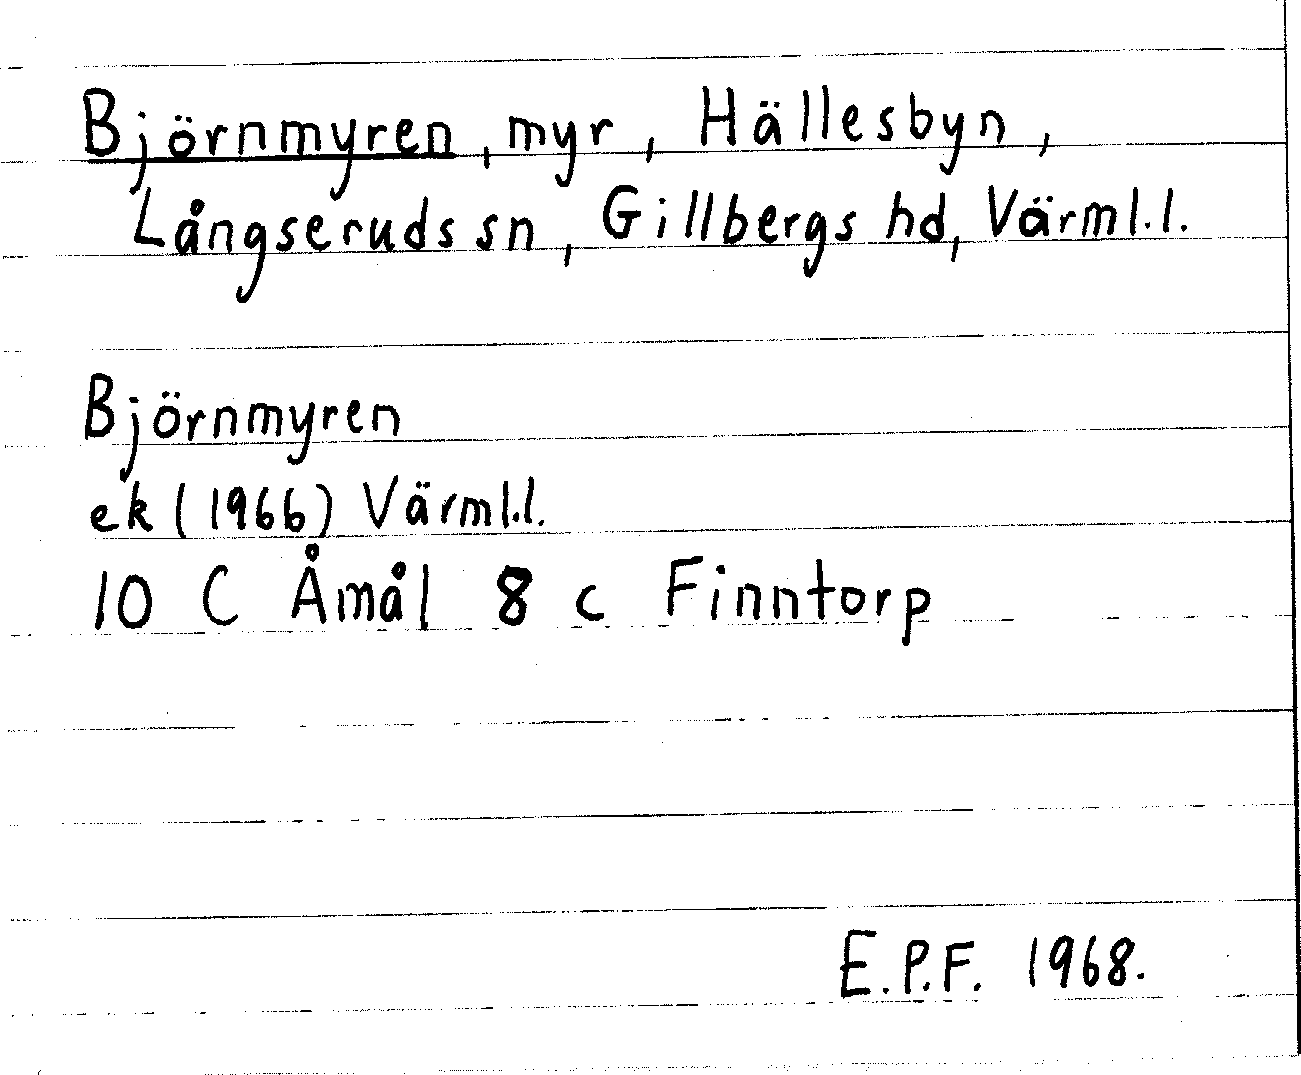 Björnmyren, myr, Hällesbyn,
Långseruds sn, Gillbergs hd, Värml.l.
Björnmyren
ek (1966) Värml.l.
10 C Åmål 8 c Finntorp
E.P.F. 1968.